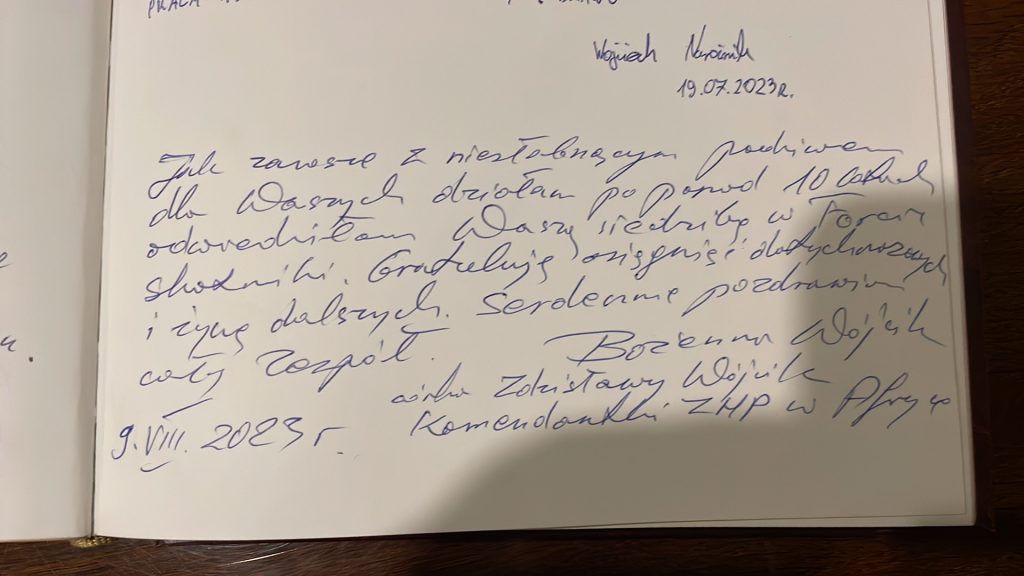 PRACA
Wojciech
19.07.2023r.
Jak zawsze z niesłabnącym podziwem
dla Waszych działań po ponad 10 latach
odwiedziłam Waszą siedzibę w
Gratuluję osiągnięć dotychczasowych
i życzę dalszych. Serdecznie pozdrawiam
cały Zespół.
Bożenna Wójcik
córka Zdzisławy Wójcik
Komendantki ZHP w Afryce
9.VIII.2023 r.